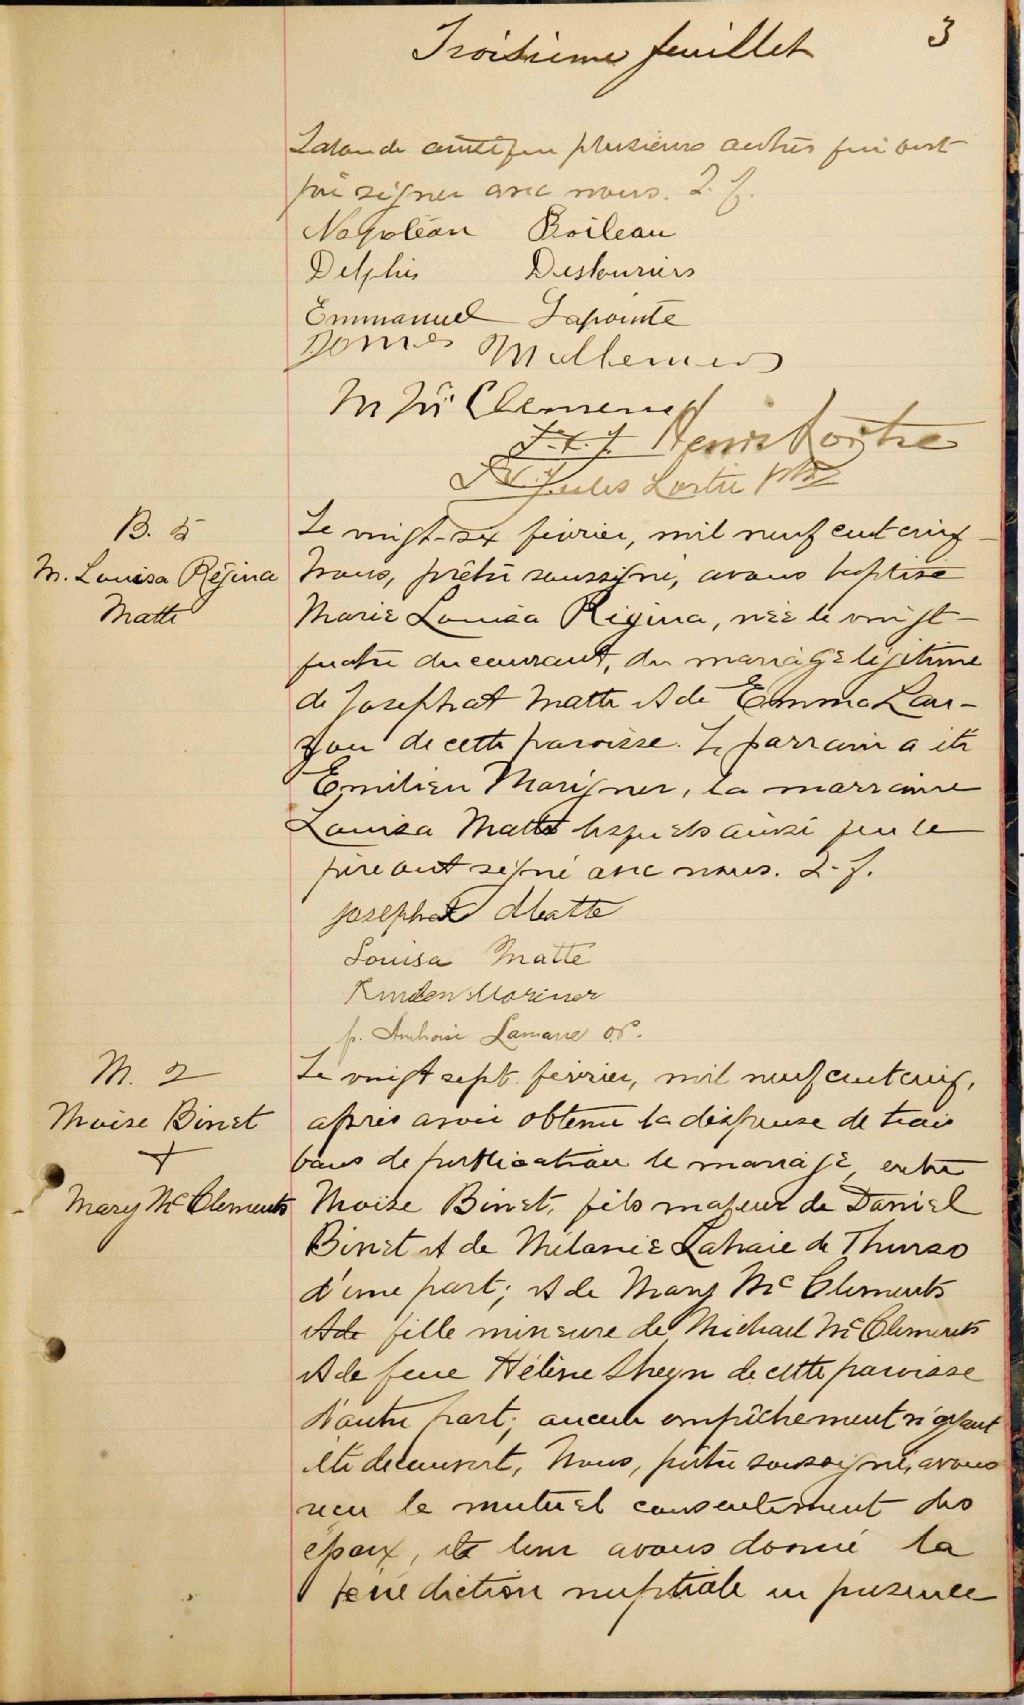 Troisieme feuillet 3
Lalande ainsi que plusieurs autres qui ont
pu signer avec nous. L. f.
Napoléon Boileau
Delphis Deslauriers
Emmanuel Lapointe
James McClements
M Clements
J. Henri Lortie
Jules Lortie ptre
B. 5
M. Louisa Régina
Matte
Le vingt-six février, mil neuf cent cinq
Nous, prêtre soussigné, avons baptisé
Marie Louisa Régina, née le vingt-
quatre du courant, du mariage légitime
de Josephat Matte et de Emma Lau-
zon de cette paroisse. Le parrain a été
Emilien Marigner, la marraine
Louisa Matte lesquels ainsi que le
père ont signé avec nous. L. f.
Josephat Matte
Louisa Matte
p. Ambroise Lamarre
M. 2
Moïse Binet
+
Mary McClements
Le vingt sept février, mil neuf cent cinq,
après avoir obtenu la dispense de trois
bans de publication le mariage, entre
Moïse Binet, fils majeur de Daniel
Binet et de Mélanie Lahaie de Thurso
d'une part; et de Mary McClements
et de fille mineure de Michael McClements
et de feue Hélène Sheyn de cette paroisse
d'autre part; aucun empêchement n'ayant
été découvert, Nous, prêtre soussigné, avons
reçu le mutuel consentement des
époux, et leur avons donné la
bénédiction nuptiale en présence